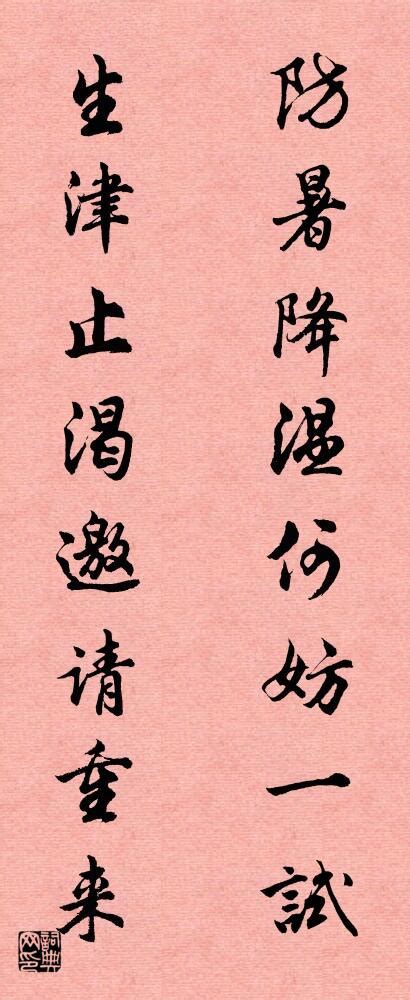 防暑降温何妨一試
生津止渴邀请重来
詞典网印